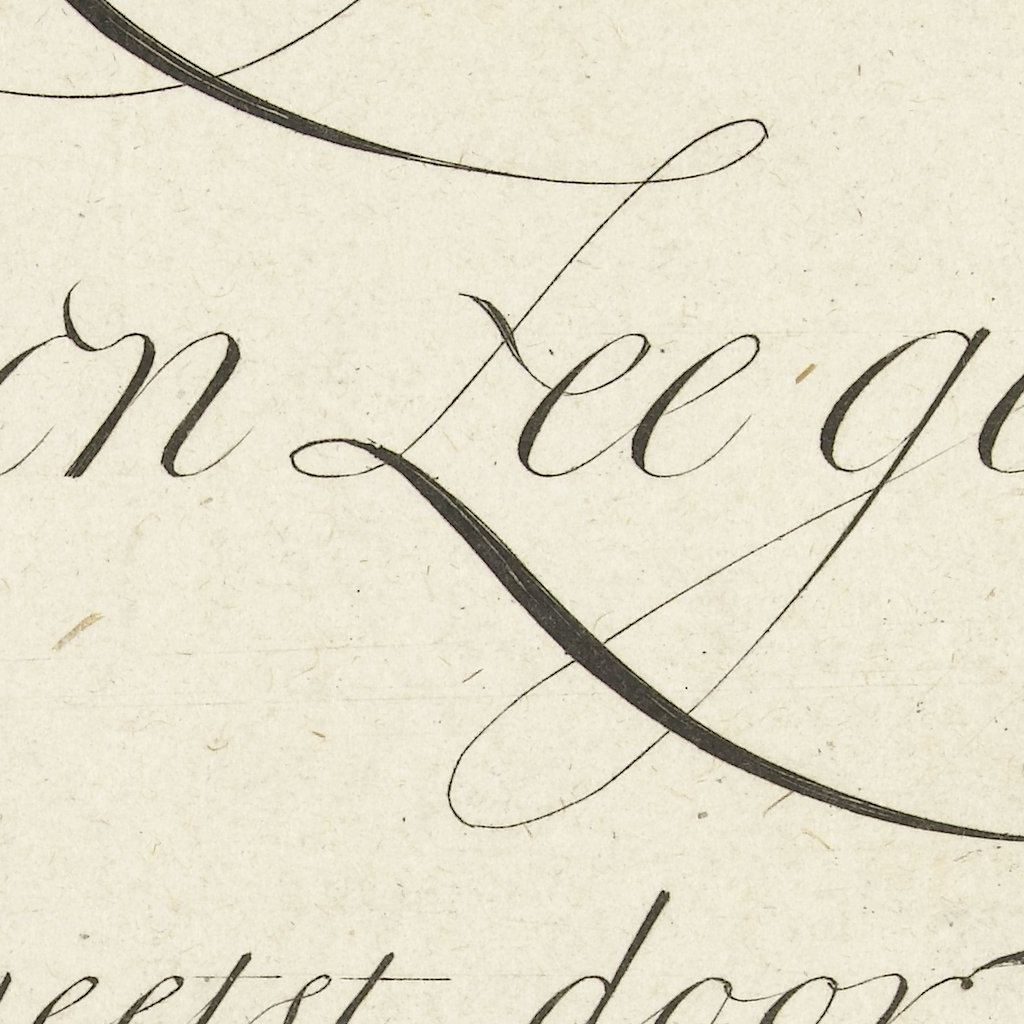 on Zee ge
eetst door